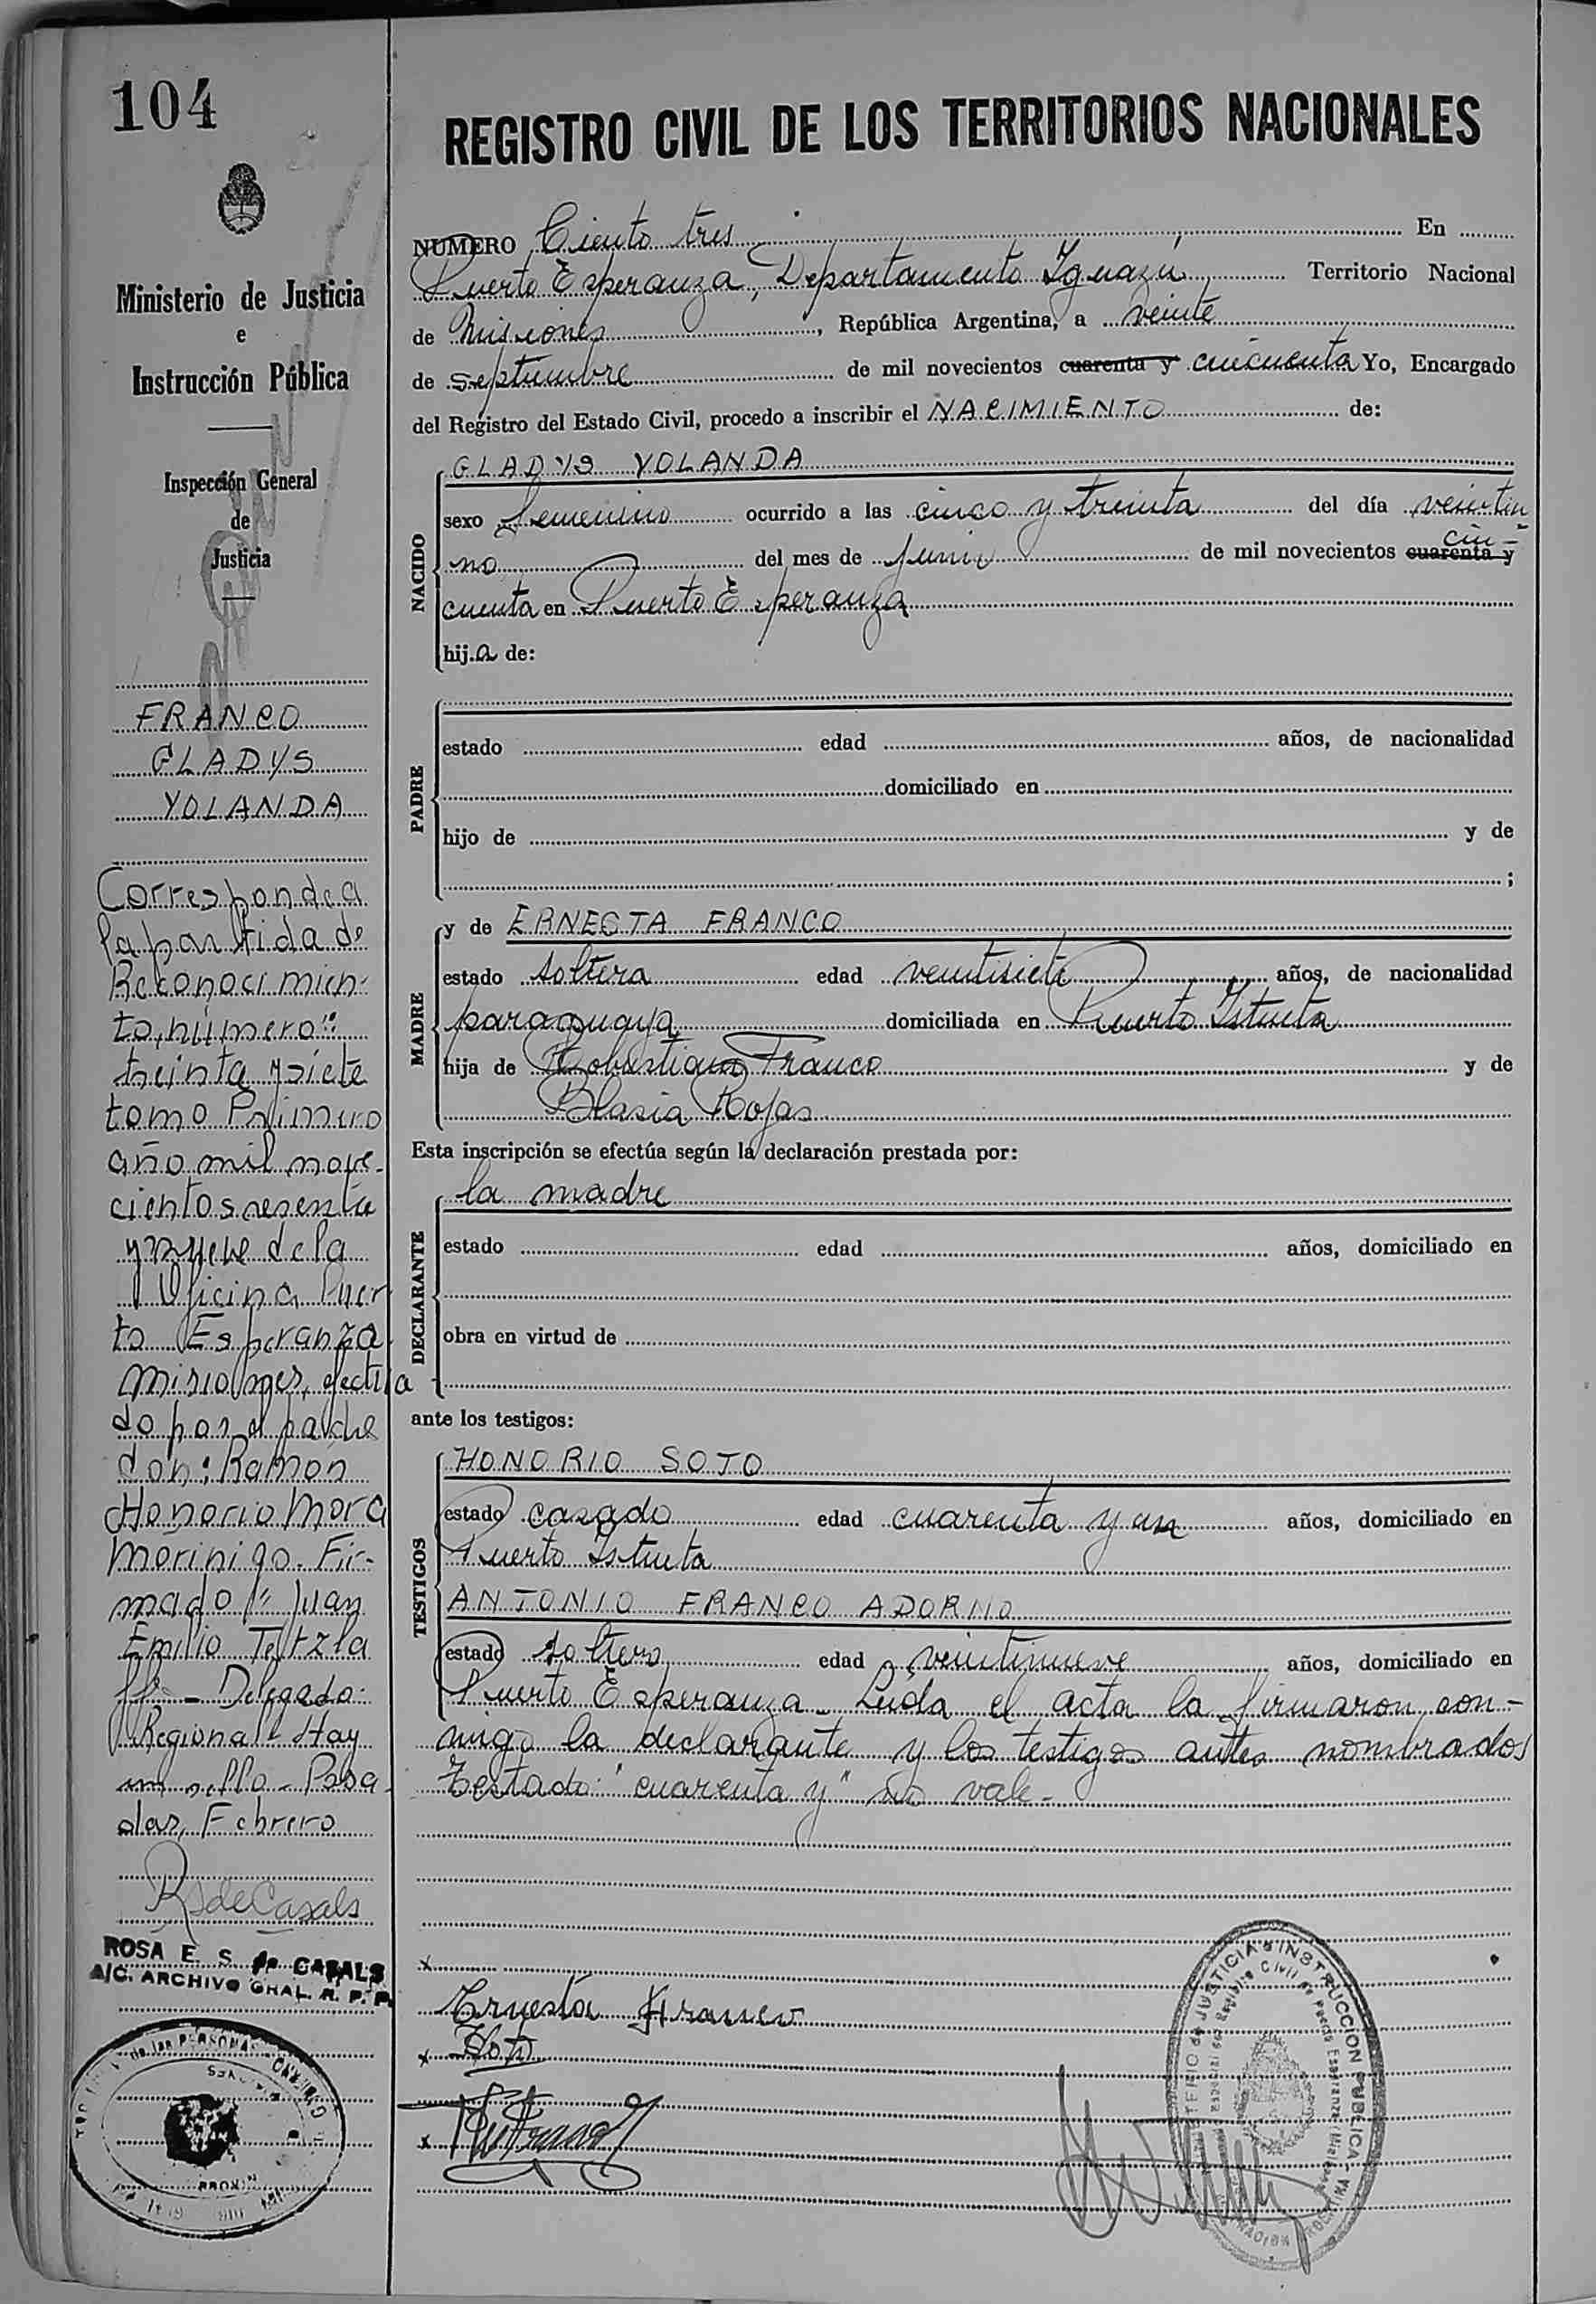 104
REGISTRO CIVIL DE LOS TERRITORIOS NACIONALES
Ministerio de Justicia
e
Instrucción Pública
Inspección General
de
Justicia
FRANCO
GLADYS
YOLANDA
Corresponde a
la partida de
Reconocimien-
to, número:
treinta y siete
tomo Primero
año mil nove-
cientos sesenta
y nueve de la
Oficina Puer
to Esperanza
Misiones, efectua
do por el padre
don: Ramón
Honorio Mora
Morinigo. Fir-
mado: Juan
Emilio Tetzla
ff - Delegado
Regional - Hay
un sello - Posa
das, Febrero
R S de Casals
ROSA E. S. de CASALS
A/C. ARCHIVO GRAL. R. P. P.
NUMERO Ciento tres En
Puerto Esperanza, Departamento Iguazú Territorio Nacional
de Misiones, República Argentina, a veinte
de septiembre de mil novecientos cuarenta y cincuenta Yo, Encargado
del Registro del Estado Civil, procedo a inscribir el NACIMIENTO de:
NACIDO
GLADYS YOLANDA
sexo femenino ocurrido a las cinco y treinta del día veintiu
no del mes de junio de mil novecientos cuarenta y cin-
cuenta en Puerto Esperanza
hija de:
PADRE
estado edad años, de nacionalidad
domiciliado en
hijo de y de
;
MADRE
y de ERNESTA FRANCO
estado soltera edad veintisiete años, de nacionalidad
paraguaya domiciliada en Puerto Istueta
hija de Robustiano Franco y de
Blasia Rojas
Esta inscripción se efectúa según la declaración prestada por:
DECLARANTE
la madre
estado edad años, domiciliado en
obra en virtud de
ante los testigos:
TESTIGOS
HONORIO SOTO
estado casado edad cuarenta y un años, domiciliado en
Puerto Istueta
ANTONIO FRANCO ADORNO
estado soltero edad veintinueve años, domiciliado en
Puerto Esperanza. Leida el acta la firmaron con-
migo la declarante y los testigos antes nombrados
Testado: "cuarenta y" no vale.
x
Ernesta Franco
x Soto
x
MINISTERIO de JUSTICIA e INSTRUCCION PUBLICA